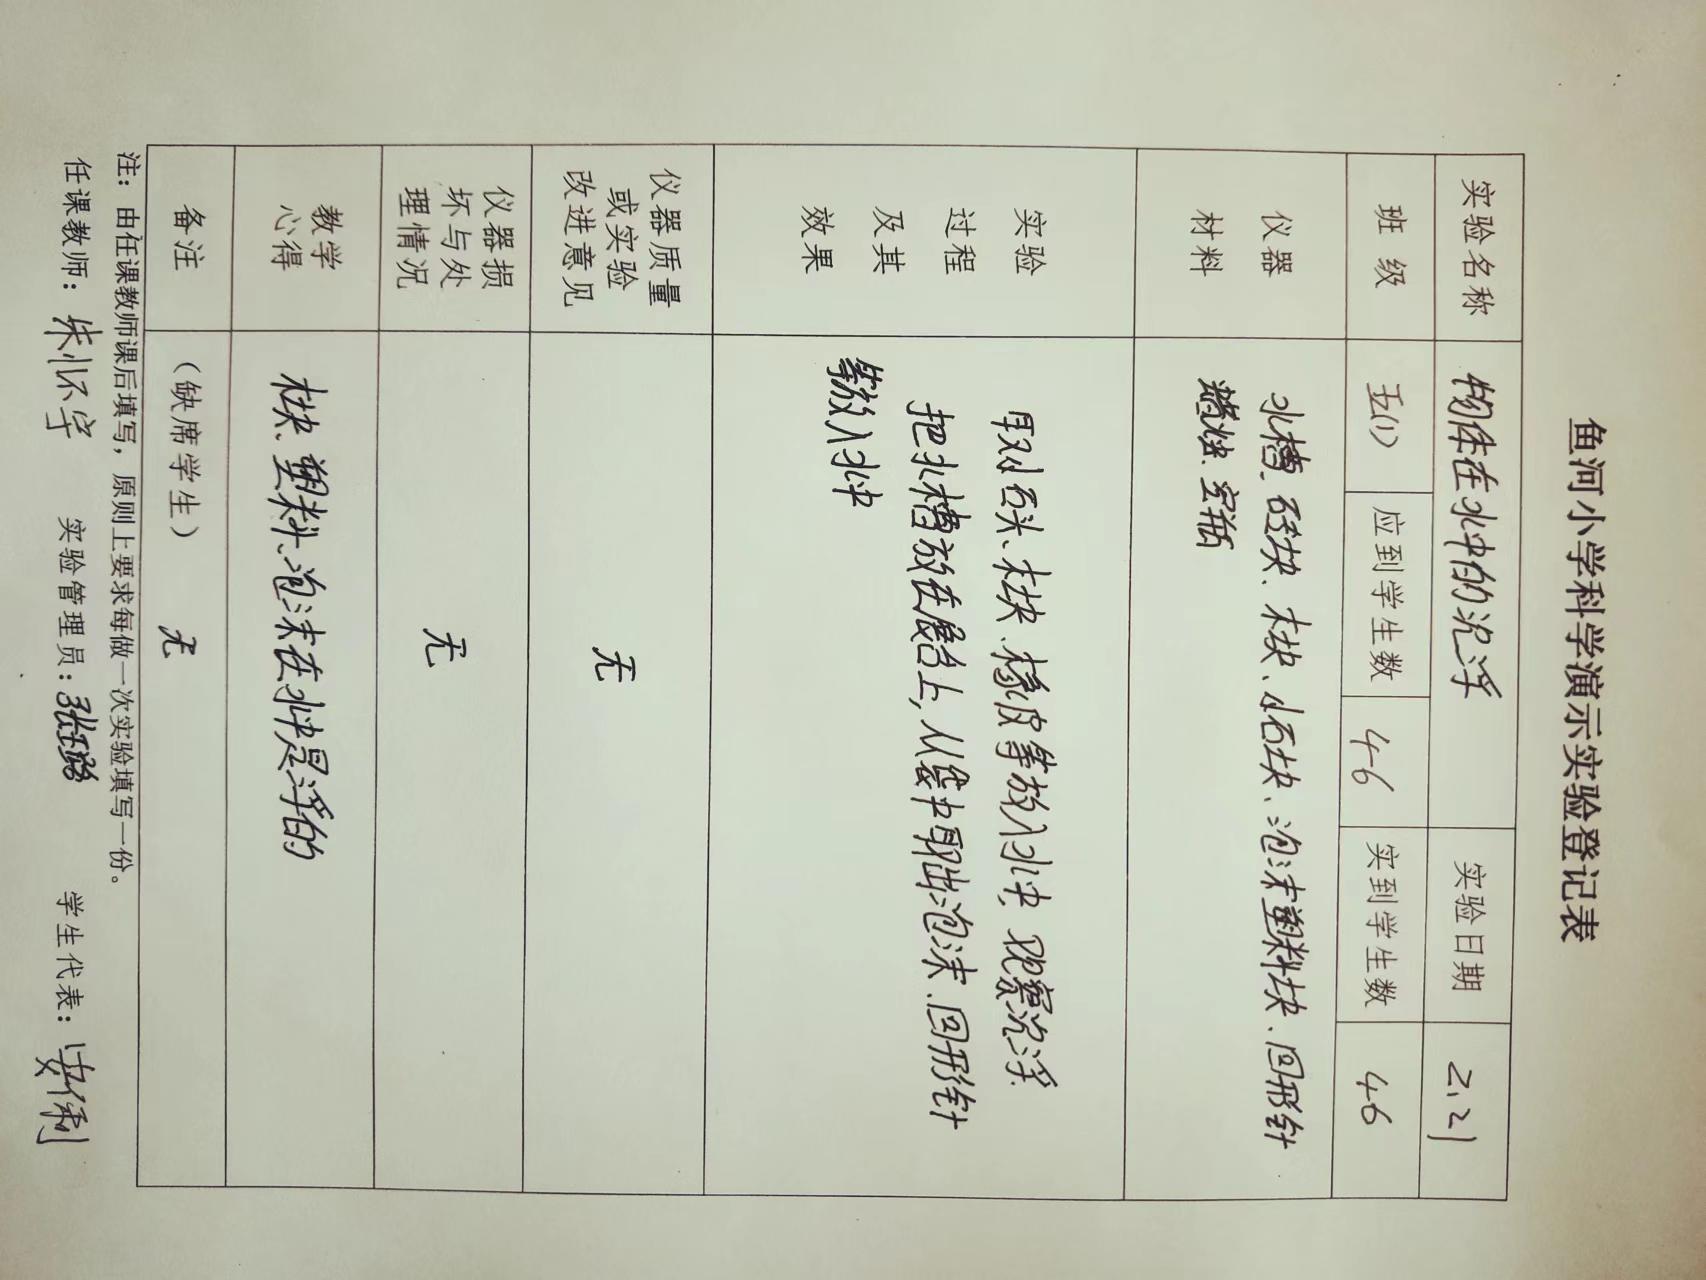 鱼河小学科学演示实验登记表
实验名称 物体在水中的沉浮 实验日期 2.21
班 级 五(1) 应到学生数 46 实到学生数 46
仪器材料
水槽、硅块、木块、小石块、泡沫塑料块、回形针
蜡烛、空瓶
实验过程及其效果
取小石头、木块、橡皮等放入水中,观察沉浮.
把水槽放在展台上,从袋中取出泡沫、回形针
等放入水中
仪器质量或实验改进意见 无
仪器损坏与处理情况 无
教学心得 木块、塑料、泡沫在水中是浮的
备注 (缺席学生) 无
注:由任课教师课后填写,原则上要求每做一次实验填写一份。
任课教师:朱怀宇 实验管理员: 学生代表: